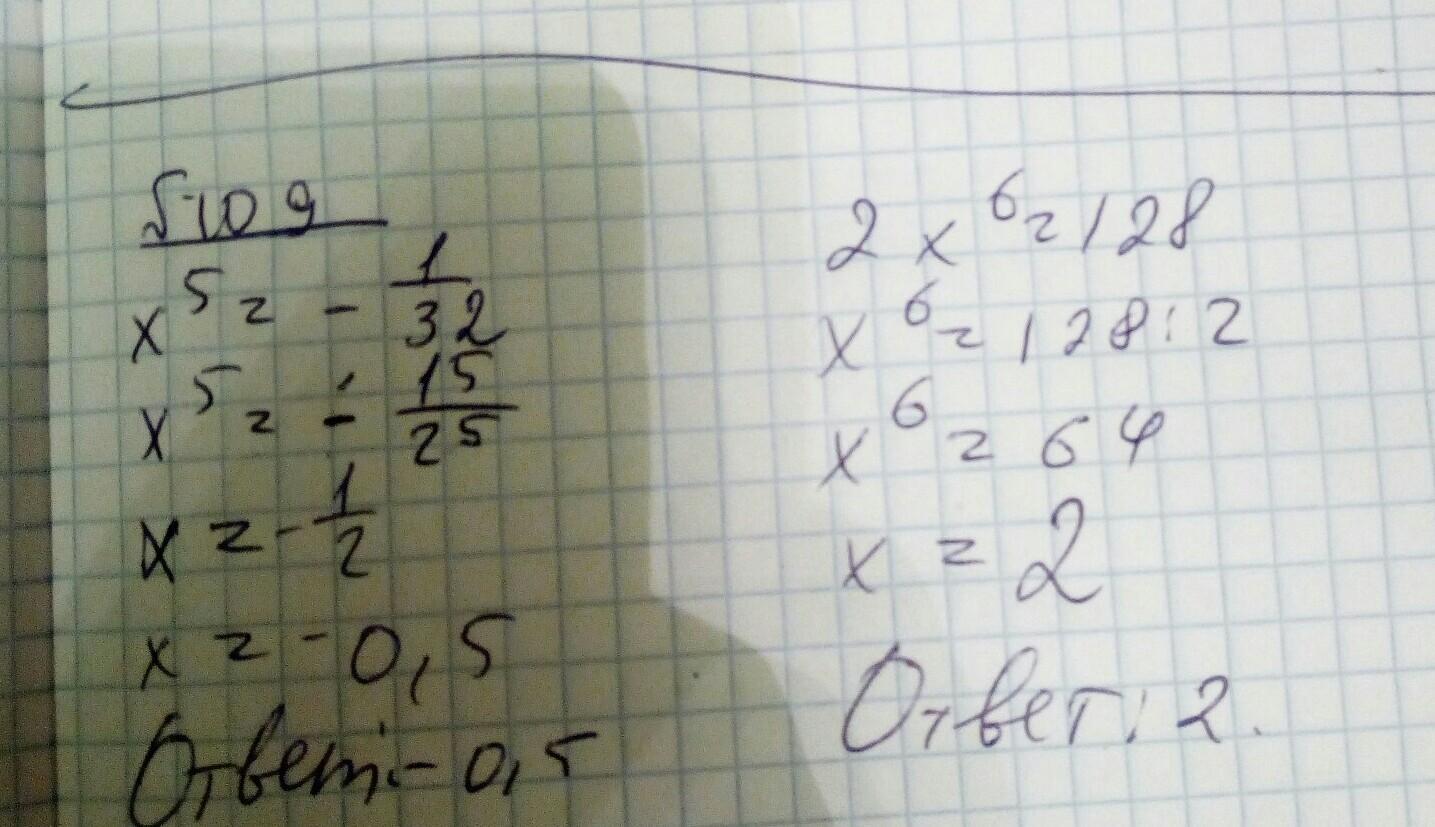 №109
x⁵ = - 1/32
x⁵ = - 1⁵/2⁵
x = - 1/2
x = - 0,5
Ответ: - 0,5
2x⁶ = 128
x⁶ = 128 : 2
x⁶ = 64
x = 2
Ответ: 2.